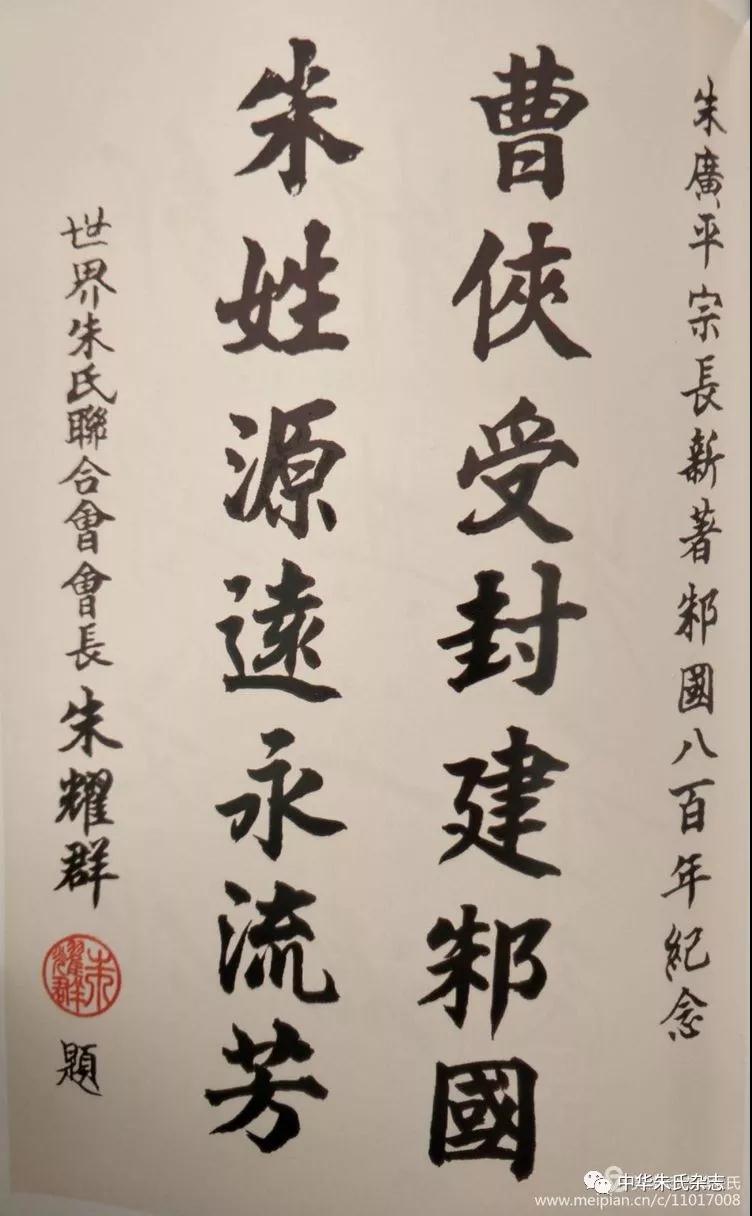 朱廣平宗長新著邾國八百年紀念
曹俠受封建邾國
朱姓源遠永流芳
世界朱氏聯合會會長 朱耀群
朱耀群
題
中华朱氏杂志
www.meipian.cn/c/11017008